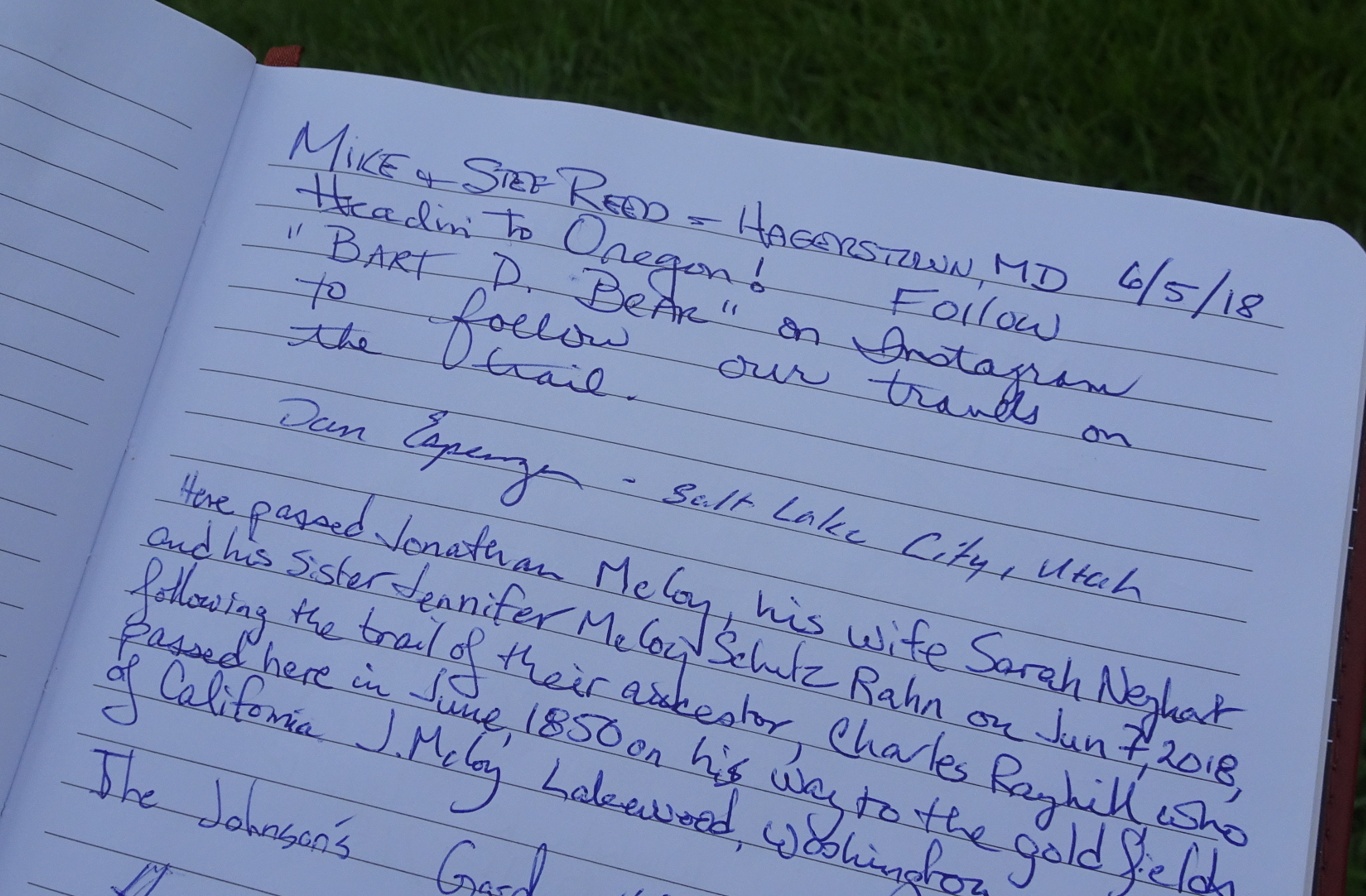 MIKE & STEF REED - HAGERSTOWN, MD 6/5/18
Headin' to Oregon! Follow
"BART D. BEAR" on Instagram
to follow our travels on
the trail.
Dan - Salt Lake City, Utah
Here passed Jonathan McCoy, his wife Sarah Neghat
and his sister Jennifer McCoy Schutz Rahn on Jun 7, 2018,
following the trail of their ancestor, Charles Rayhill who
passed here in June, 1850 on his way to the gold fields
of California J. McCoy Lakewood, Washington
The Johnson's